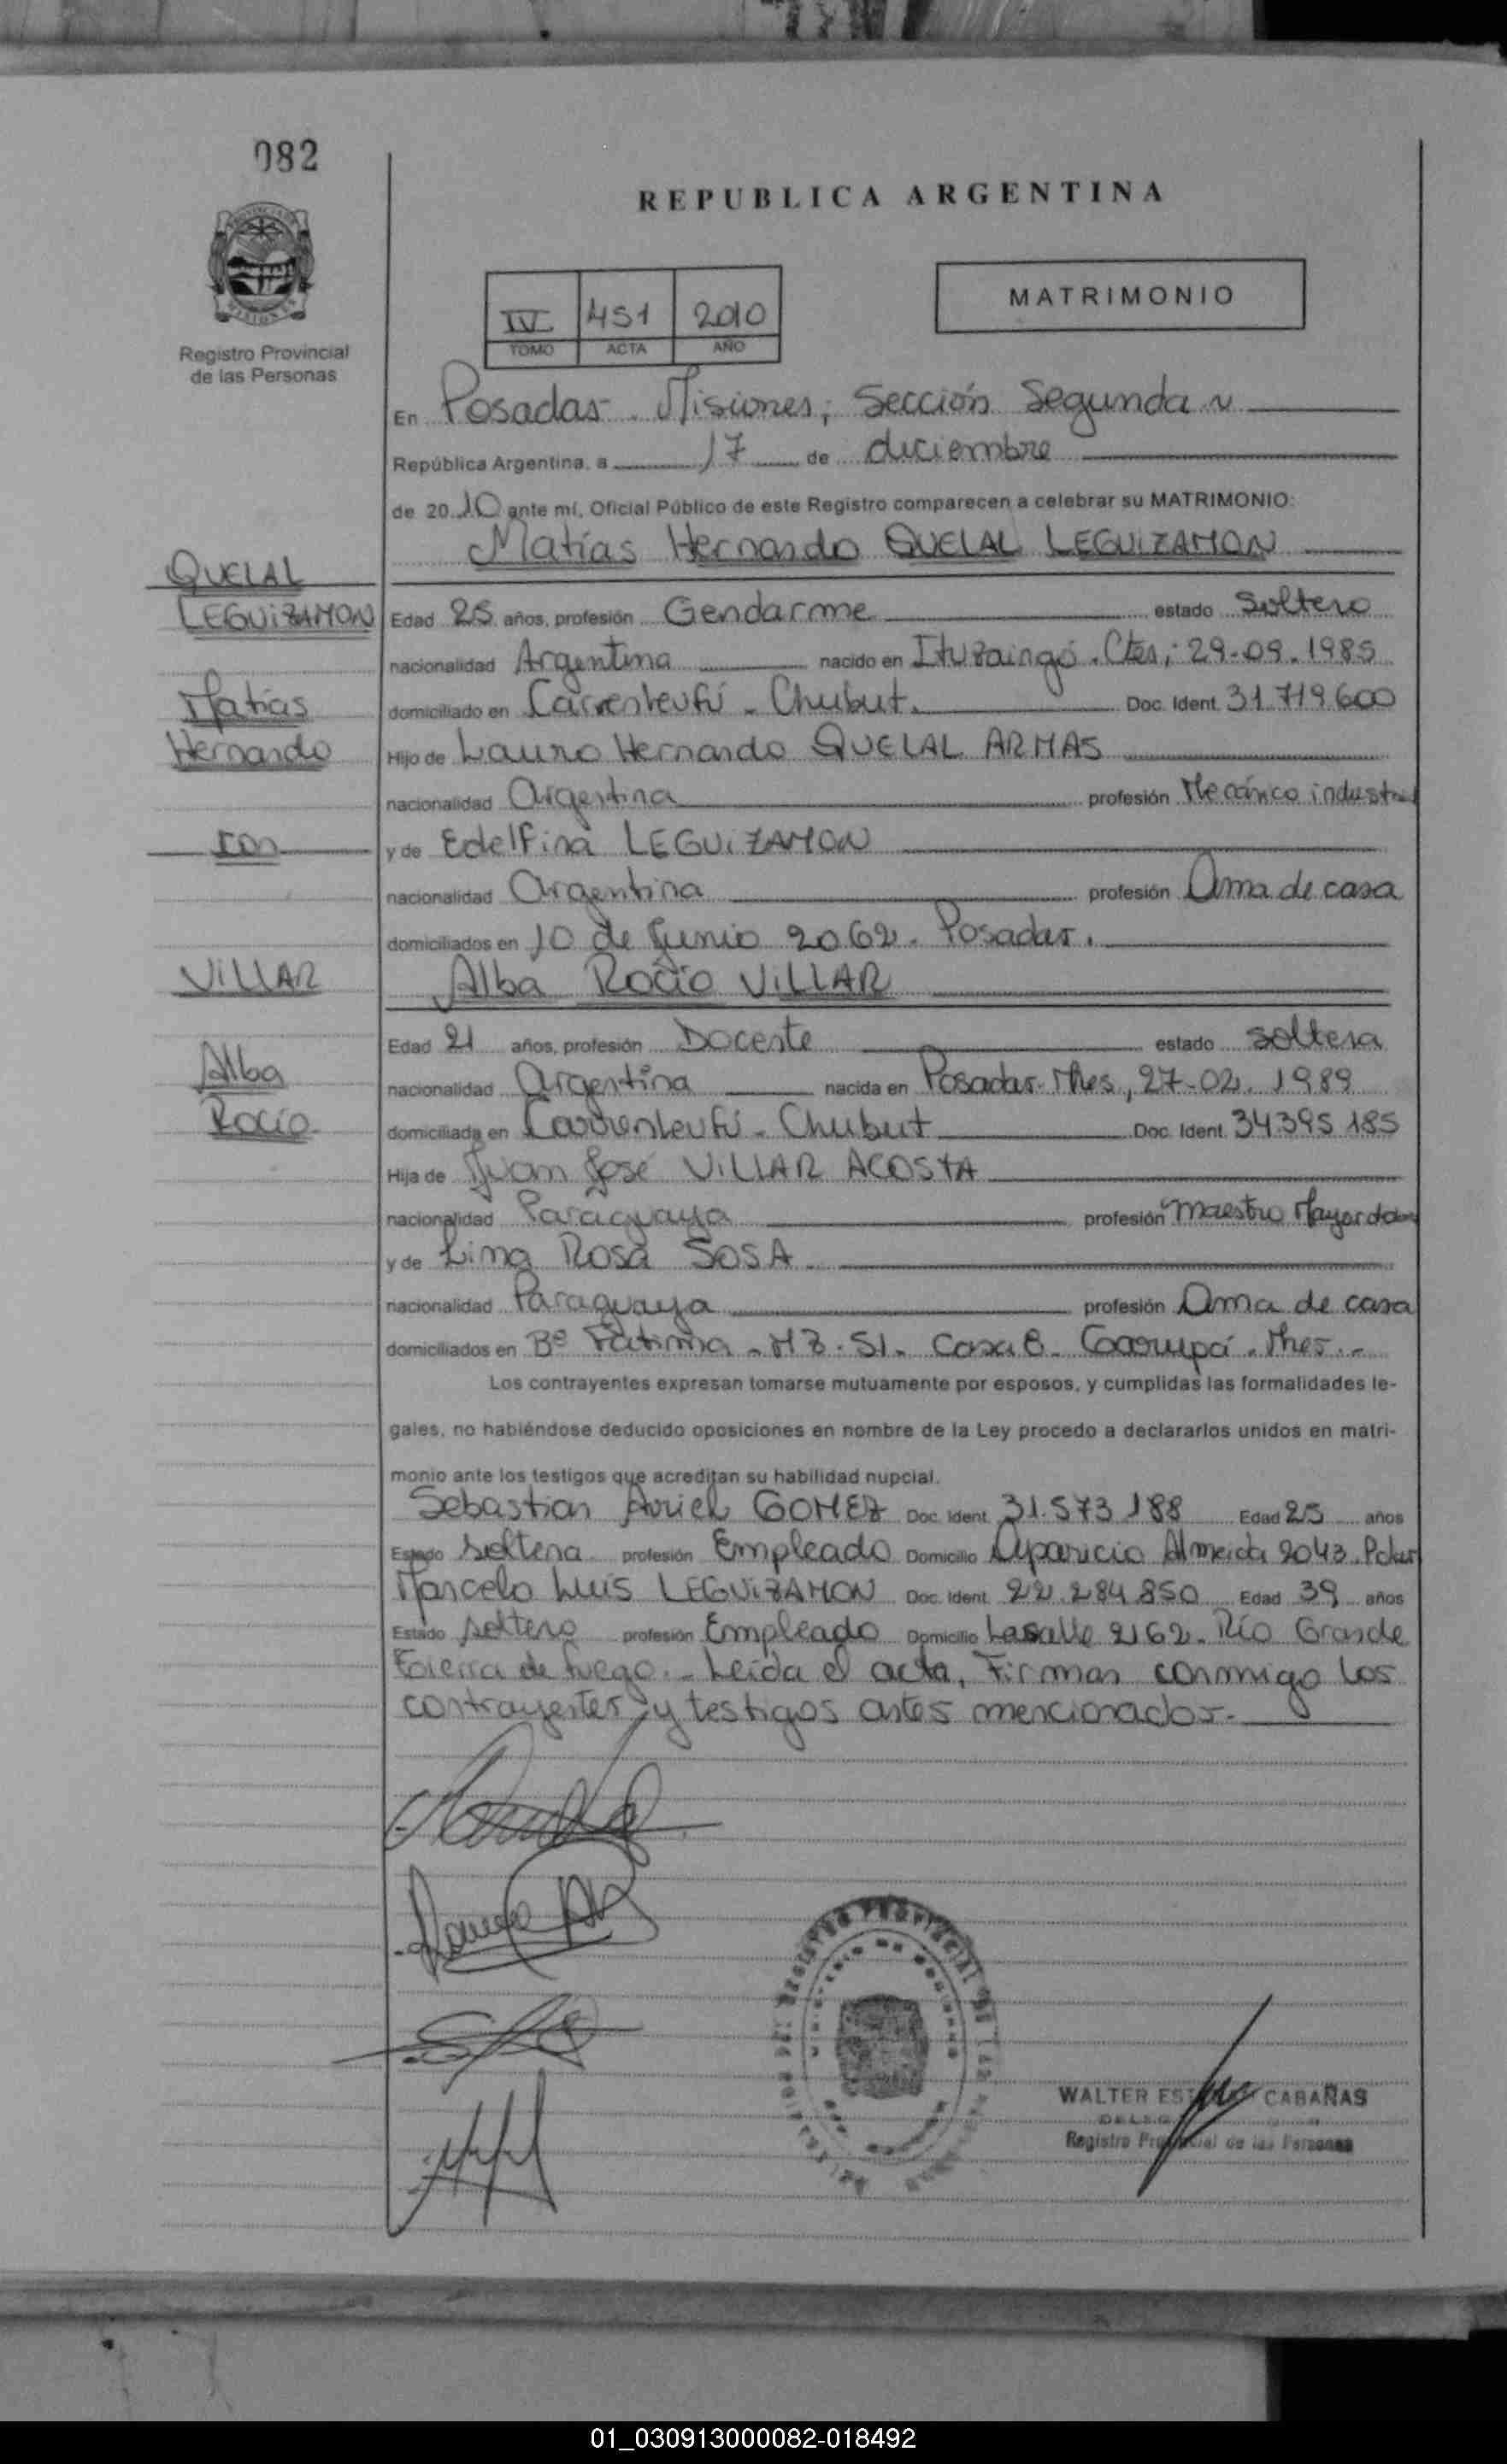 082
REPUBLICA ARGENTINA
IV 451 2010
TOMO ACTA AÑO
MATRIMONIO
Registro Provincial
de las Personas
En Posadas - Misiones; Sección Segunda
República Argentina, a 17 de diciembre
de 2010 ante mí, Oficial Público de este Registro comparecen a celebrar su MATRIMONIO:
Matías Hernando QUELAL LEGUIZAMON
QUELAL
LEGUIZAMON
Edad 25 años, profesión Gendarme estado Soltero
nacionalidad Argentina nacido en Ituzaingó. Ctes; 29-09-1985
Matías
domiciliado en Carrenleufú - Chubut. Doc. Ident. 31.719.600
Hernando
Hijo de Lauro Hernando QUELAL ARMAS
nacionalidad Argentina profesión Mecánico industrial
con
y de Edelfina LEGUIZAMON
nacionalidad Argentina profesión Ama de casa
domiciliados en 10 de Junio 2062. Posadas.
VILLAR
Alba Rocío VILLAR
Edad 21 años, profesión Docente estado soltera
Alba
nacionalidad Argentina nacida en Posadas-Mnes, 27-02-1989
Rocío
domiciliada en Carrenleufú - Chubut Doc. Ident. 34.395.185
Hija de Juan José VILLAR ACOSTA
nacionalidad Paraguaya profesión Maestro Mayor
y de Lina Rosa SOSA.
nacionalidad Paraguaya profesión Ama de casa
domiciliados en Bº Fátima - MZ. 51. Casa 8. Garupá - Mnes.-
Los contrayentes expresan tomarse mutuamente por esposos, y cumplidas las formalidades le-
gales, no habiéndose deducido oposiciones en nombre de la Ley procedo a declararlos unidos en matri-
monio ante los testigos que acreditan su habilidad nupcial.
Sebastian Ariel GOMEZ Doc. Ident. 31.573.188 Edad 25 años
Estado soltero profesión Empleado Domicilio Aparicio Almeida 2043.
Marcelo Luis LEGUIZAMON Doc. Ident. 22.284.850 Edad 39 años
Estado soltero profesión Empleado Domicilio Lasalle 2162. Río Grande
Tierra de Fuego.- Leída el acta, Firman conmigo los
contrayentes y testigos antes mencionados.-
WALTER CABAÑAS
Registro Provincial de las Personas
01_030913000082-018492